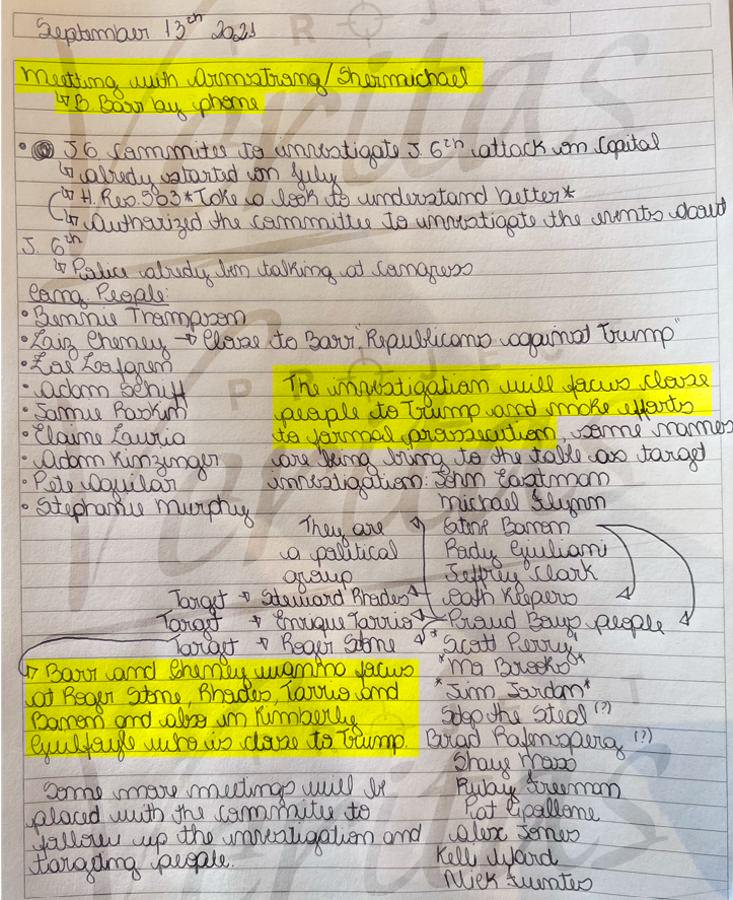 September 13th 2021
Meetting with Armstrong/Shermichael
↳ B Barr by phone
• J6 Committe to investigate J. 6th attack on Capital
↳ alredy started on July
↳ H. Res. 503 *Take a look to understand better*
↳ Authorized the committe to investigate the events about
J. 6th
↳ Police alredy ben talking at Congress
Cong. People:
• Bennie Thompson
• Laiz Cheney → Close to Barr "Republicans against Trump"
• Zoe Lofgren
• Adam Schiff
• Jamie Raskin
• Elaine Lauria
• Adam Kinzinger
• Pete Aguilar
• Stephanie Murphy
The investigation will focus close
people to Trump and make efforts
to formal prossecution, some names
are being bring to the table as target
investigation: John Eastman
Michael Flynn
Steve Bannon
Rudy Giuliani
Jeffrey Clark
Oath Keepers
Proud Boys people
*Scott Perry*
*Mo Brooks*
*Jim Jordan*
Stop the Steal (?)
Brad Rafensperg (?)
Shaye Moss
Ruby Freeman
Pat Cipollone
Alex Jones
Kelli Ward
Nick Fuentes
They are
a political
group
Target → Steward Rhodes
Target → Enrique Tarrio
Target → Roger Stone
↳ Barr and Cheney wanna focus
at Roger Stone, Rhodes, Tarrio and
Bannon and also in Kimberly
Guilfoyle who is close to Trump.
Some more meetings will be
placed with the committe to
follow up the investigation and
targeting people.
PROJECT
Veritas
PROJECT
Veritas